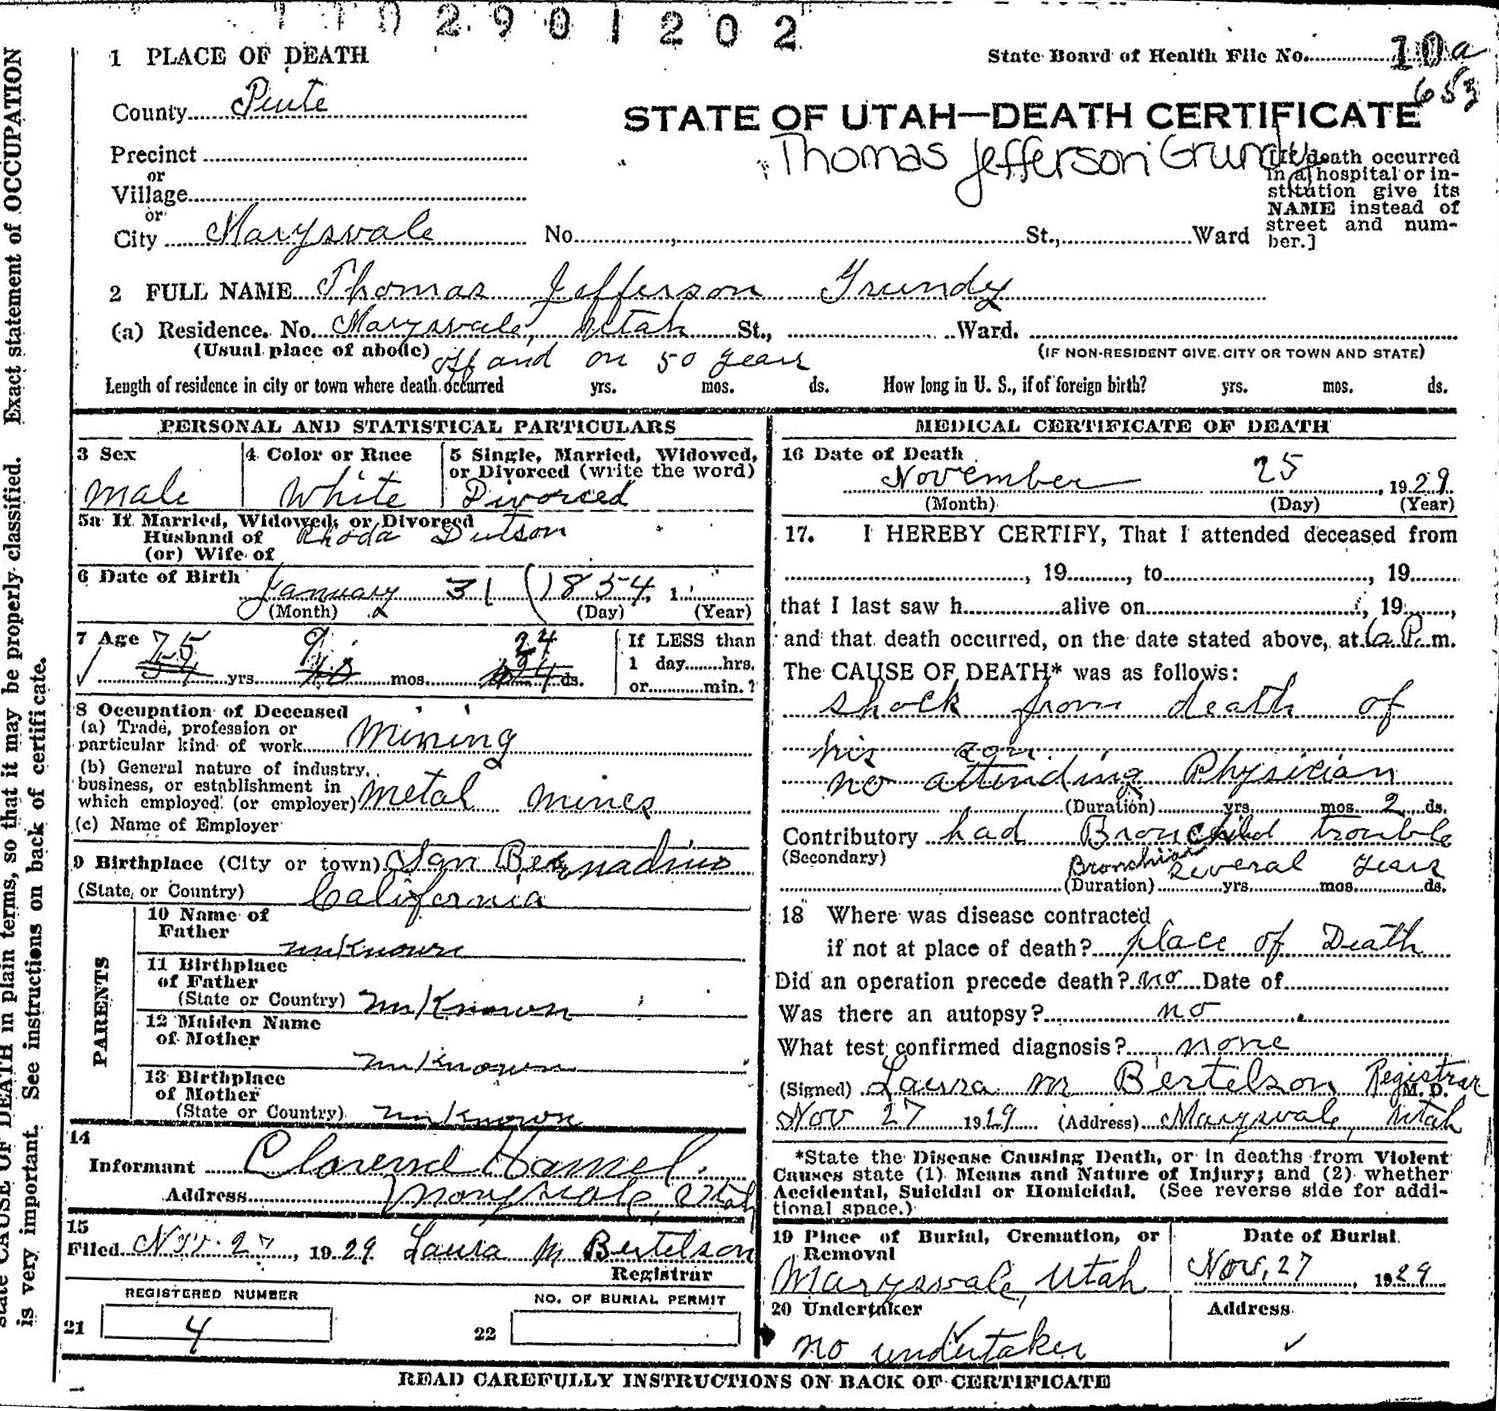 1 1 0 2 9 0 1 2 0 2
1 PLACE OF DEATH
State Board of Health File No. 10a
653
County Piute
STATE OF UTAH—DEATH CERTIFICATE
Thomas Jefferson Grundy
Precinct
or
Village
or
City Marysvale No. St., Ward
[If death occurred
in a hospital or in-
stitution give its
NAME instead of
street and num-
ber.]
2 FULL NAME Thomas Jefferson Grundy
(a) Residence. No. Marysvale, Utah St., Ward.
(Usual place of abode) off and on 50 years
(IF NON-RESIDENT GIVE CITY OR TOWN AND STATE)
Length of residence in city or town where death occurred yrs. mos. ds. How long in U. S., if of foreign birth? yrs. mos. ds.
PERSONAL AND STATISTICAL PARTICULARS
3 Sex
male
4 Color or Race
White
5 Single, Married, Widowed,
or Divorced (write the word)
Divorced
5a If Married, Widowed, or Divorced
Husband of Rhoda Dutson
(or) Wife of
6 Date of Birth January 31 (1854, 1
(Month) 2 (Day) (Year)
7 Age 75 9 24
yrs. mos. ds.
If LESS than
1 day hrs.
or min.?
8 Occupation of Deceased
(a) Trade, profession or
particular kind of work Mining
(b) General nature of industry,
business, or establishment in
which employed (or employer) Metal mines
(c) Name of Employer
9 Birthplace (City or town) San Bernadino
(State or Country) California
PARENTS
10 Name of
Father
unknown
11 Birthplace
of Father
(State or Country) unknown
12 Maiden Name
of Mother
unknown
13 Birthplace
of Mother
(State or Country) unknown
14
Informant Hamel.
Address Marysvale, Utah
15
Filed Nov. 27, 1929 Laura M Bertelson
Registrar
REGISTERED NUMBER
21 4
NO. OF BURIAL PERMIT
22
MEDICAL CERTIFICATE OF DEATH
16 Date of Death
November 25, 1929
(Month) (Day) (Year)
17. I HEREBY CERTIFY, That I attended deceased from
, 19, to , 19
that I last saw h alive on , 19,
and that death occurred, on the date stated above, at 6 P.m.
The CAUSE OF DEATH* was as follows:
shock from death of
his son
no attending Physician
(Duration) yrs. mos. 2 ds.
Contributory had Bronchial trouble
(Secondary)
Bronshian Several years
(Duration) yrs. mos. ds.
18 Where was disease contracted
if not at place of death? place of Death
Did an operation precede death? no Date of
Was there an autopsy? no
What test confirmed diagnosis? none
(Signed) Laura M Bertelson Registrar
M. D.
Nov 27 1929 (Address) Marysvale, Utah
*State the Disease Causing Death, or in deaths from Violent
Causes state (1) Means and Nature of Injury; and (2) whether
Accidental, Suicidal or Homicidal. (See reverse side for addi-
tional space.)
19 Place of Burial, Cremation, or
Removal
Marysvale, Utah
Date of Burial
Nov, 27, 1929
20 Undertaker
no undertaker
Address
READ CAREFULLY INSTRUCTIONS ON BACK OF CERTIFICATE
state CAUSE OF DEATH in plain terms, so that it may be properly classified. Exact statement of OCCUPATION
is very important. See instructions on back of certificate.